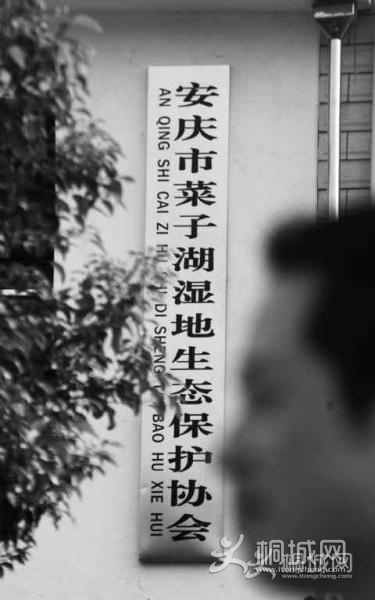 安庆市菜子湖湿地生态保护协会
AN QING SHI CAI ZI HU SHI DI SHENG TAI BAO HU XIE HUI
桐城网
www.itongcheng.com